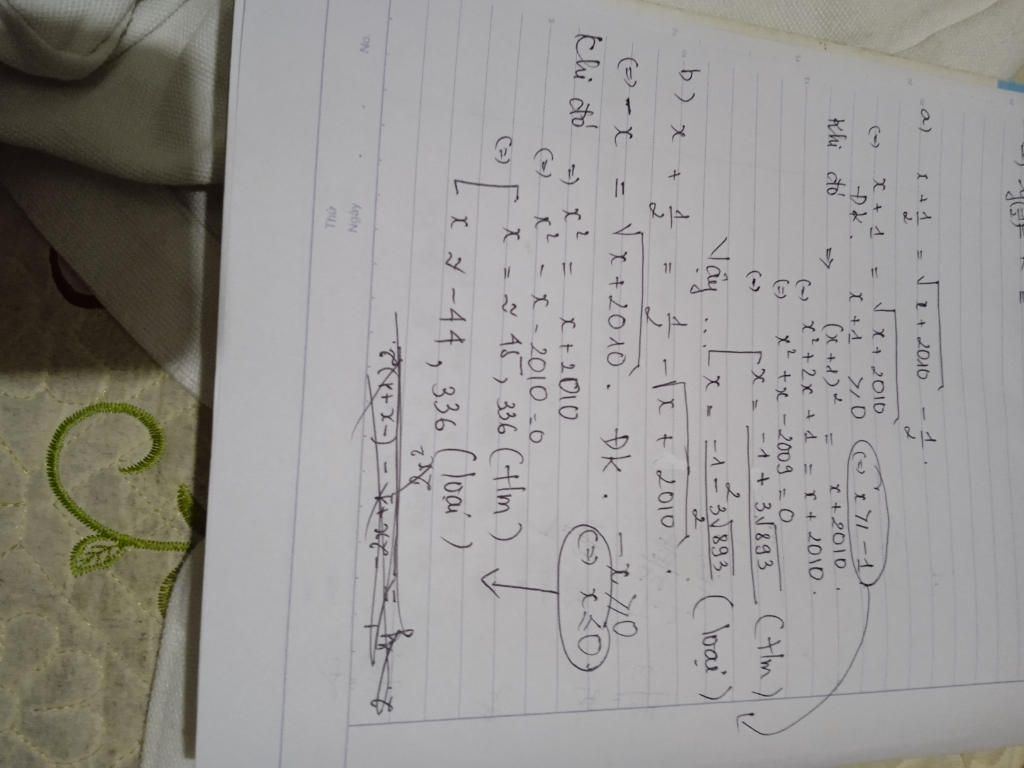 a) x + 1/2 = √(x + 2010) - 1/2.
(=) x + 1 = √(x + 2010)
Đk. x + 1 ≥ 0 (=) x ≥ -1
khi đó => (x+1)² = x + 2010.
(=) x² + 2x + 1 = x + 2010.
(=) x² + x - 2009 = 0
(=) [ x = (-1 + 3√893)/2 (tlm)
Vậy .. [ x = (-1 - 3√893)/2 (loại)
b) x + 1/2 = 1/2 - √(x + 2010).
(=) -x = √(x + 2010). Đk. -x ≥ 0
(=) x ≤ 0
Khi đó => x² = x + 2010
(=) x² - x - 2010 = 0
(=) [ x = ≈ 45,336 (tlm)
[ x ≈ -44,336 (loại)
No.
Thứ
Ngày